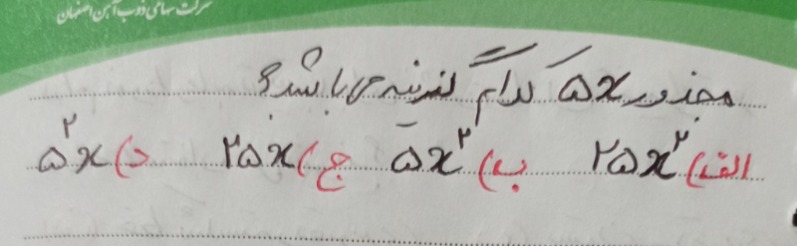 شرکت سهامی ذوب آهن اصفهان
مجذور ۵x کدام گزینه می باشد؟
الف) ۲۵x² ب) ۵x² ج) ۲۵x د) ۵²x